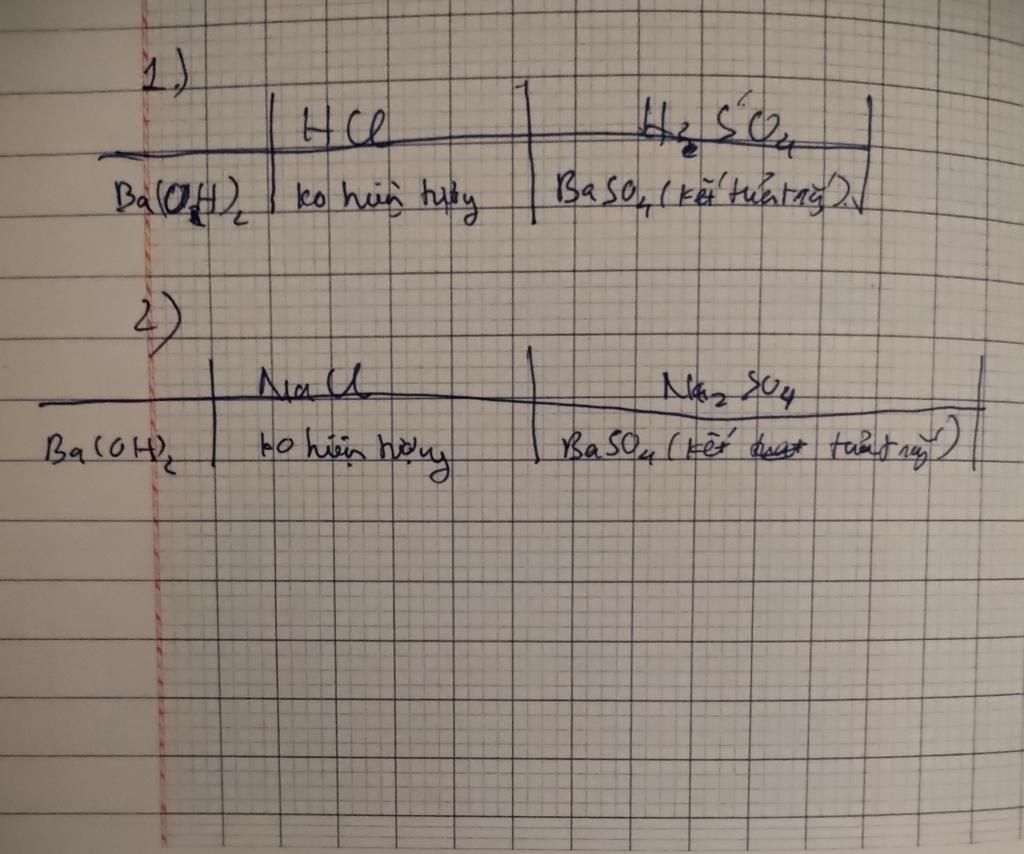 1.)
HCl H₂SO₄
Ba(OH)₂ ko hiện tượng BaSO₄ (kết tủa trắng).
2)
NaCl Na₂SO₄
Ba(OH)₂ ko hiện tượng BaSO₄ (kết tủa trắng)